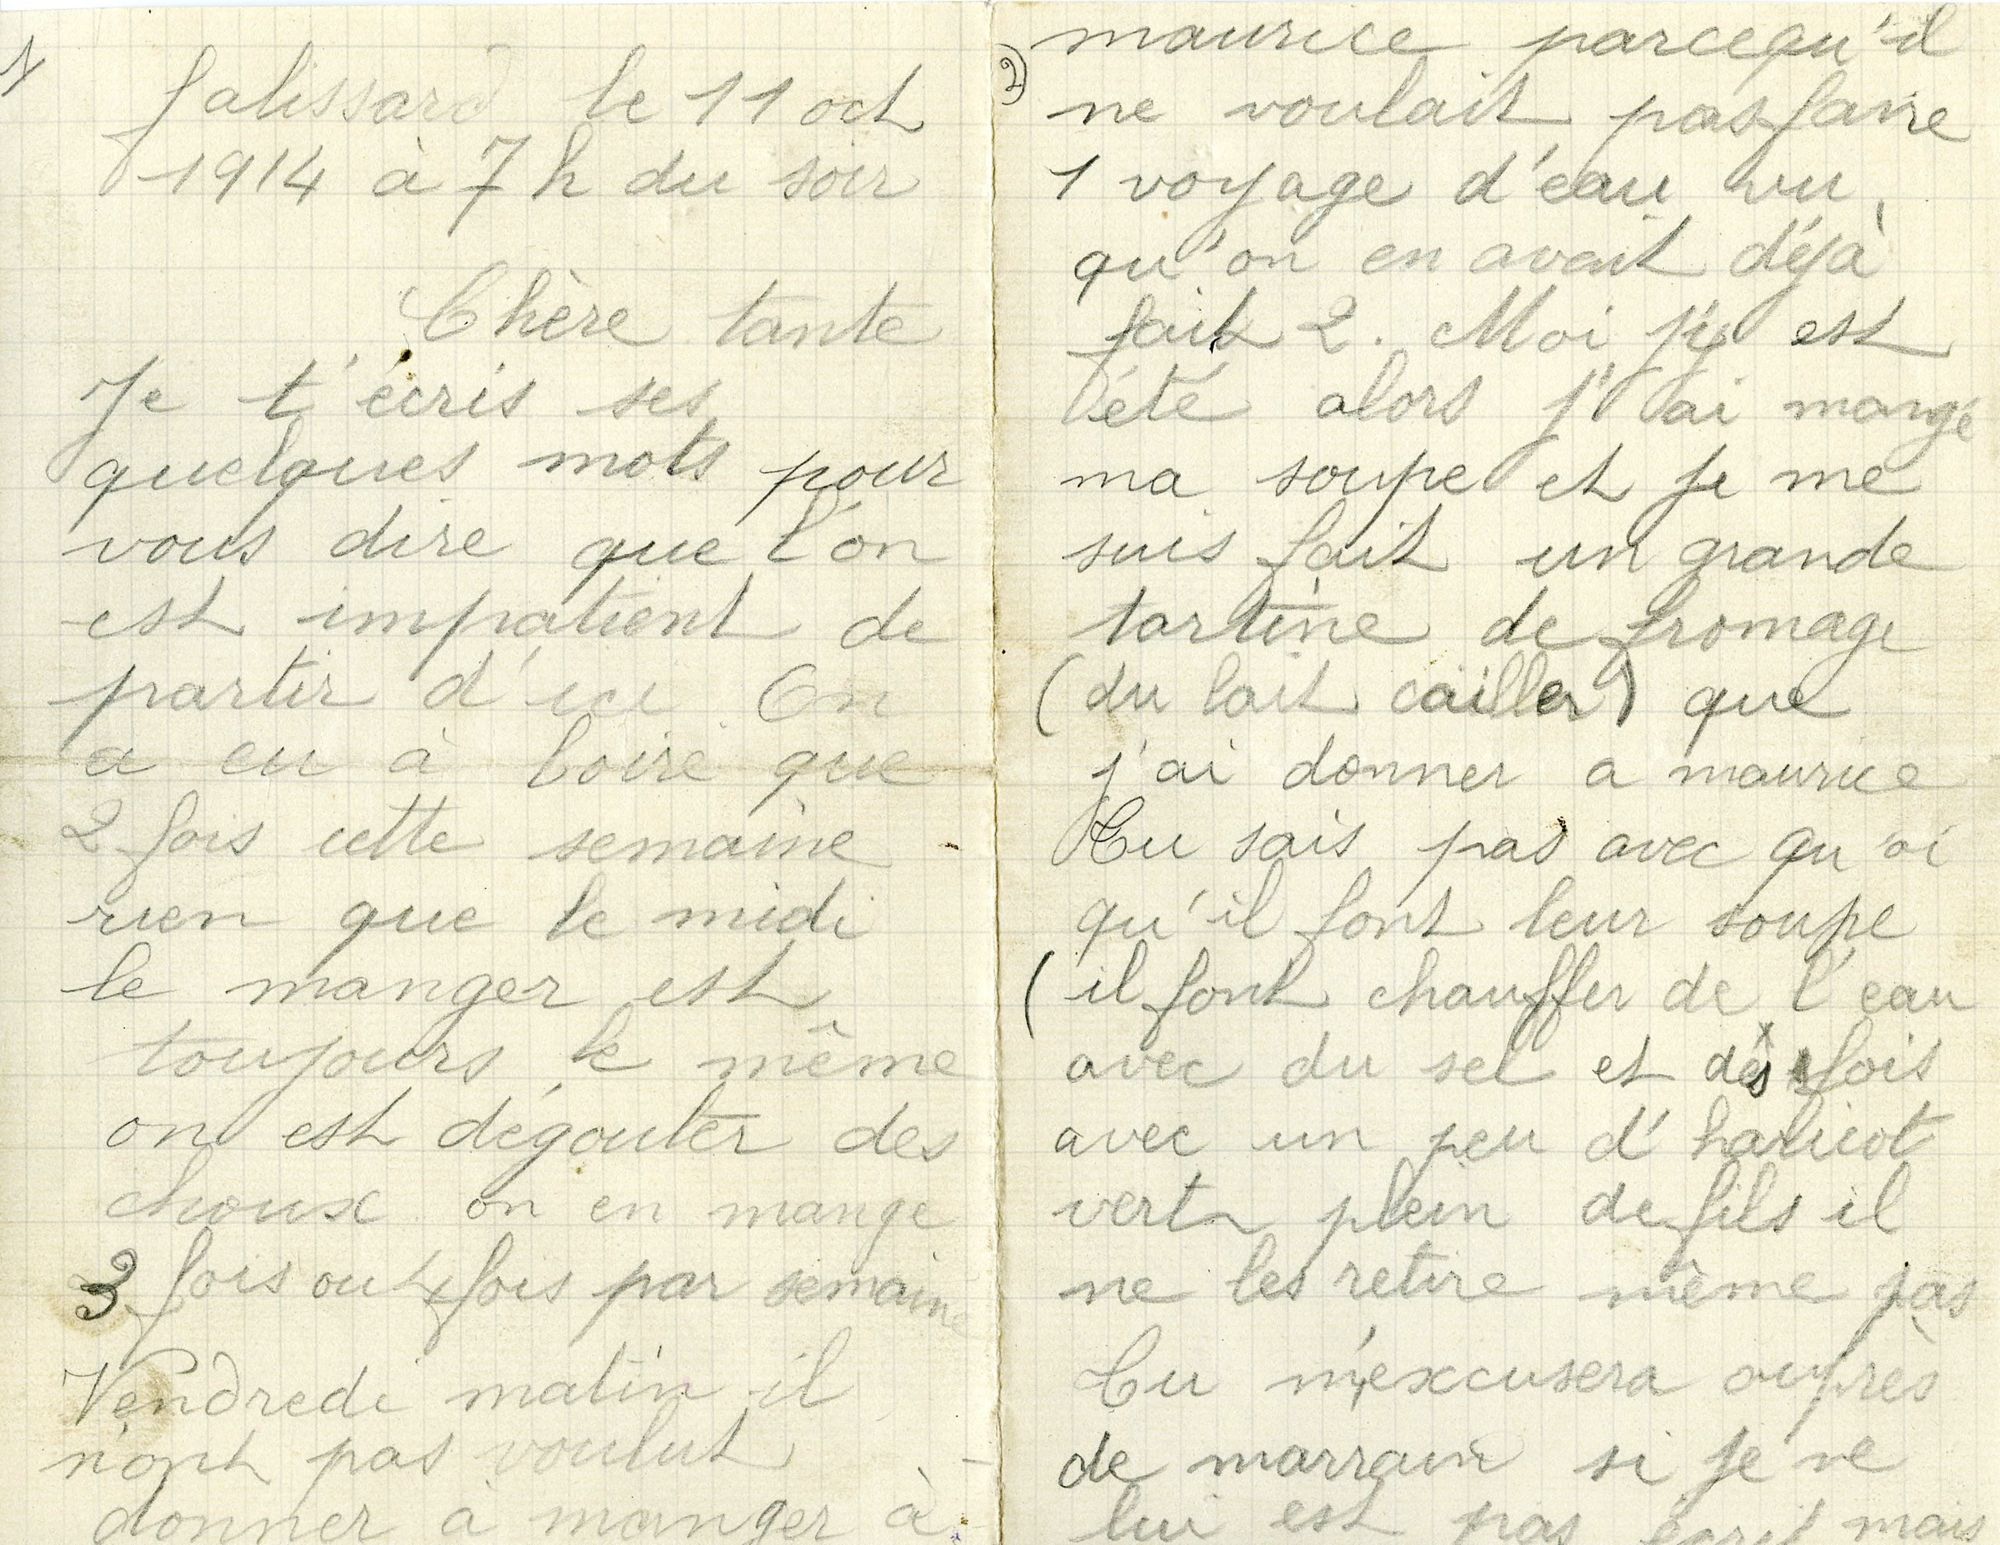 1)
Jalissard le 11 oct
1914 à 7 h du soir
Chère tante
Je t'écris ses
quelques mots pour
vous dire que l'on
est impatient de
partir d'ici. On
a eu à boire que
2 fois cette semaine
rien que le midi
le manger est
toujours le même
on est dégouter des
choux on en mange
3 fois ou 4 fois par semaine
Vendredi matin il
n'ont pas voulut
donner à manger à
2)
maurice parcequ'il
ne voulait pas faire
1 voyage d'eau vu
qu'on en avait déjà
fait 2. Moi j'y est
été alors j'ai mangé
ma soupe et je me
suis fait un grande
tartine de fromage
(du lait cailler) que
j'ai donner a maurice
Tu sais pas avec qu'oi
qu'il font leur soupe
(il font chauffer de l'eau
avec du sel et des fois
avec un peu d'haricot
vert plein de fils il
ne les retire même pas
Tu m'excusera auprès
de marraine si je ne
lui est pas écrit mais